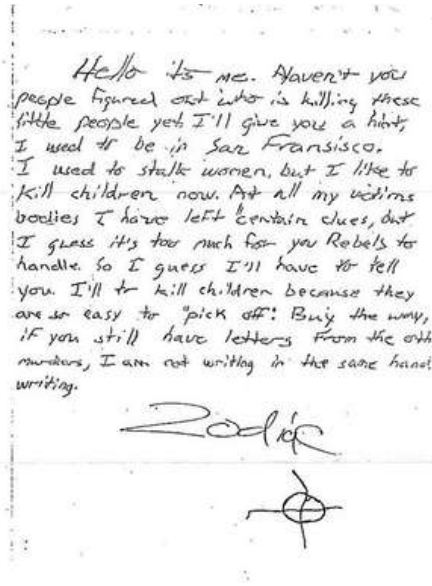 Hello it's me. Haven't you
people figured out who is killing these
little people yet? I'll give you a hint,
I used to be in San Fransisco.
I used to stalk women, but I like to
kill children now. At all my victims
bodies I have left certain clues, but
I guess it's too much for you Rebels to
handle. So I guess I'll have to tell
you. I'll kill children because they
are so easy to "pick off". Buy the way,
if you still have letters from the oth
murders, I am not writing in the same hand
writing.
Zodiac